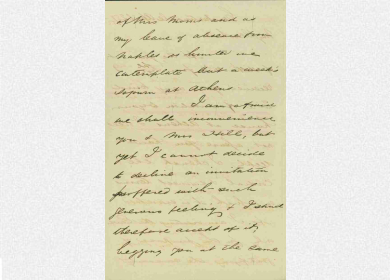 of Mrs Morris and as
my leave of absence from
Naples is limited we
contemplate but a week's
sojourn at Athens
I am afraid
we shall inconvenience
you & Mrs Hill, but
yet I cannot decide
to decline an invitation
proffered with such
generous feeling & I
therefore accept of it,
begging you at the same